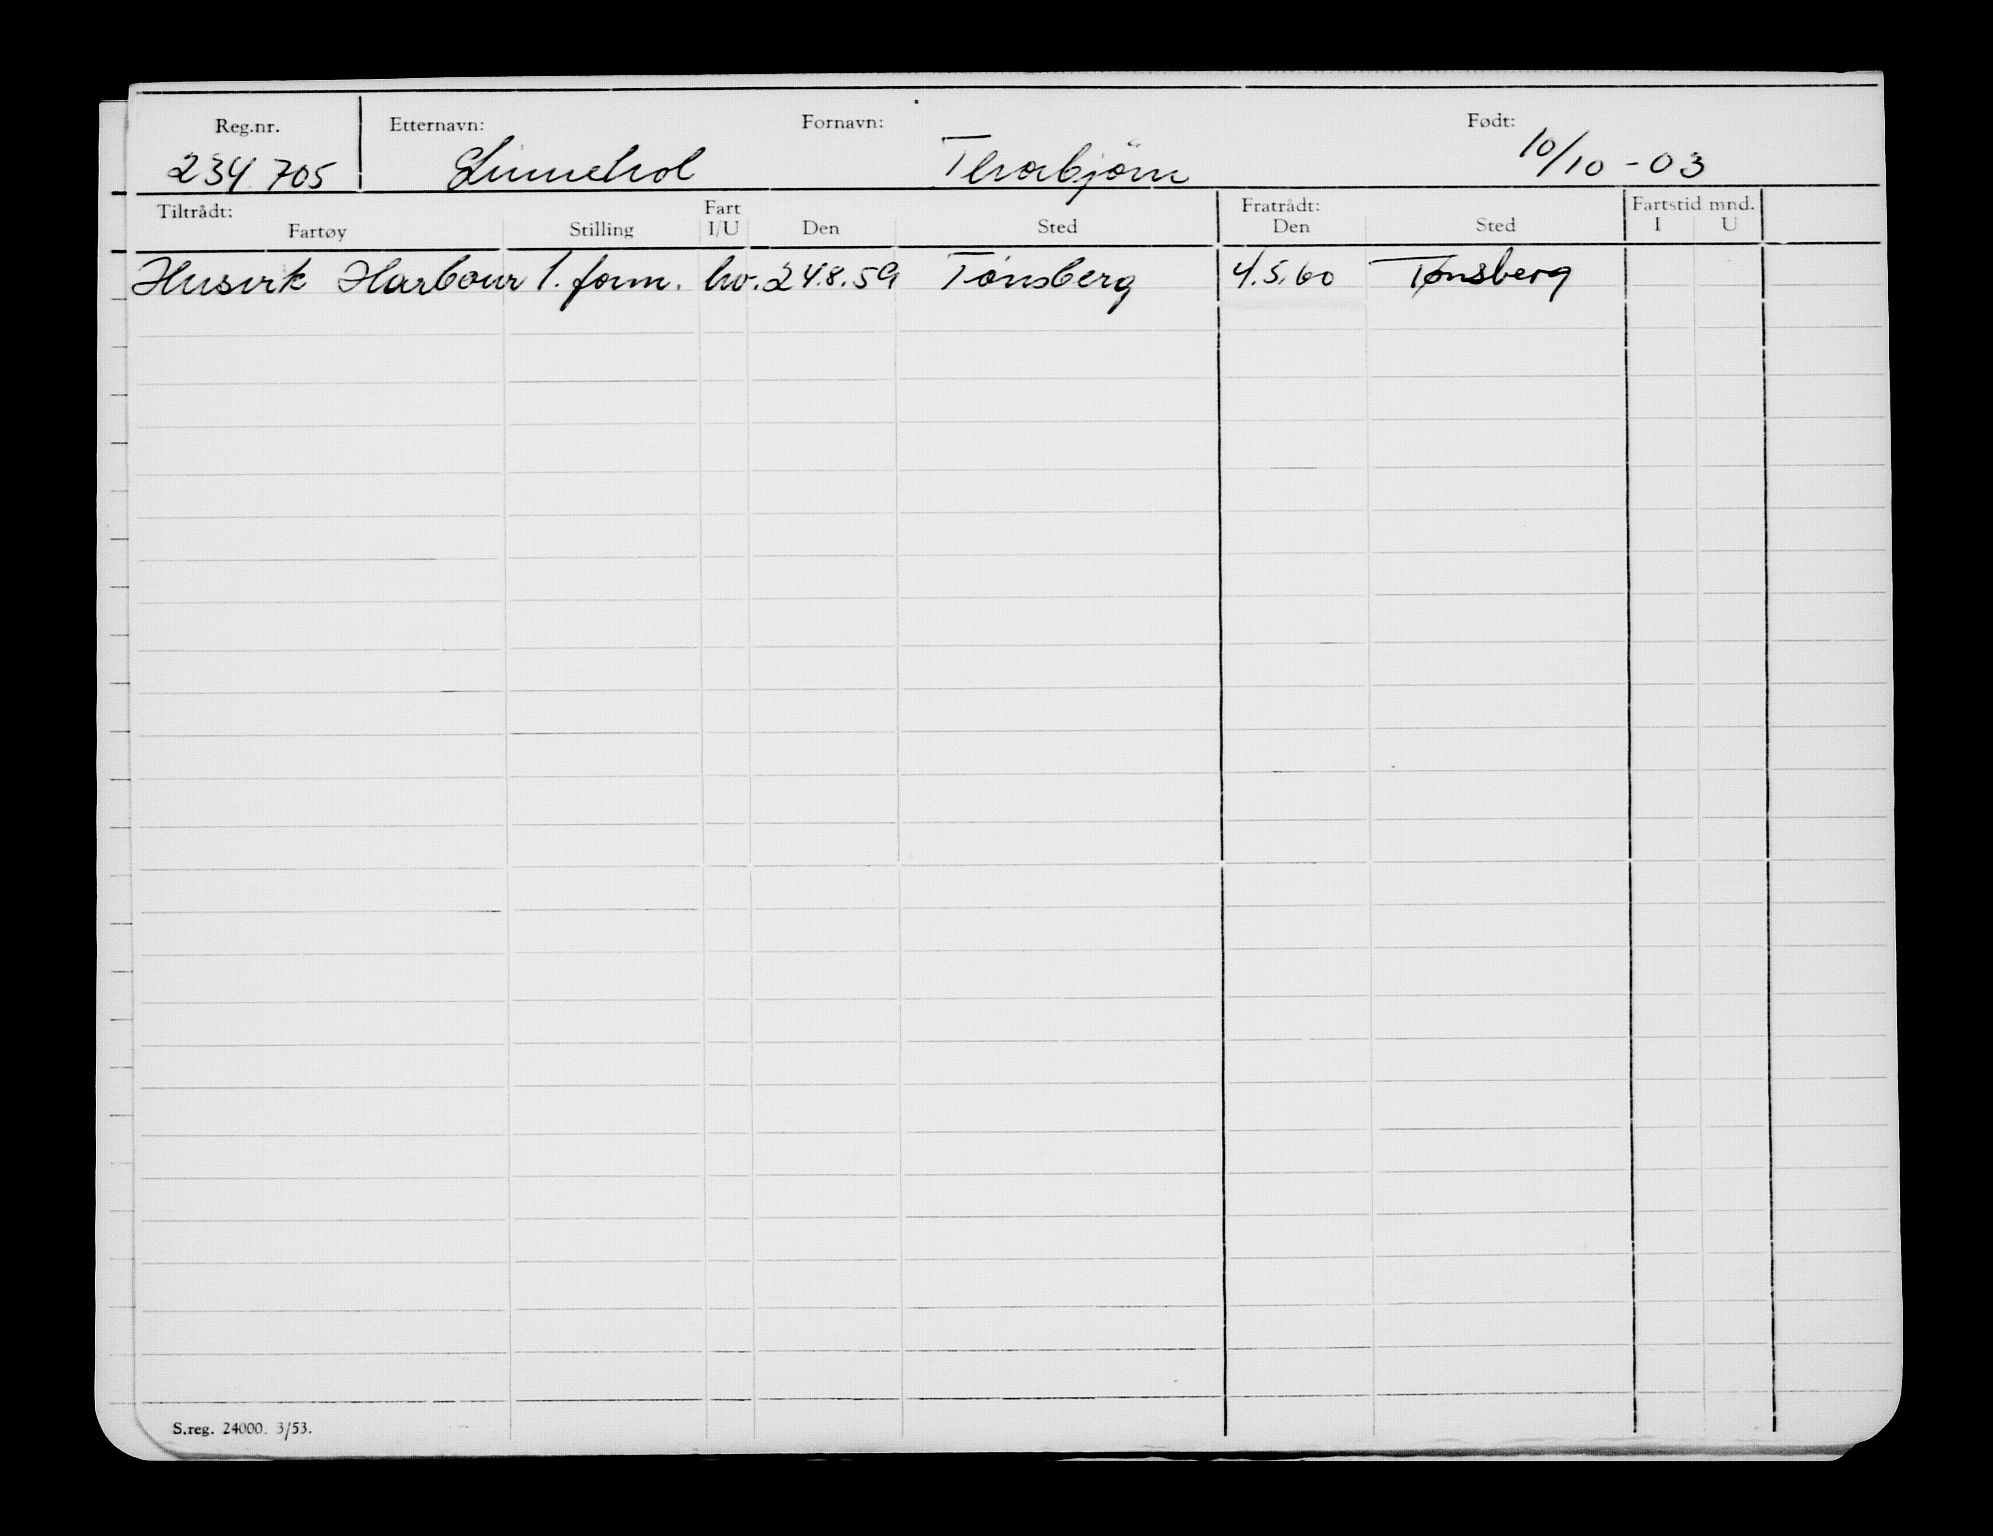 Reg.nr. Etternavn: Fornavn: Født:
234705 Linnehol Thorbjörn 10/10 - 03
Tiltrådt: Fart Fratrådt: Fartstid mnd.
Fartøy Stilling I/U Den Sted Den Sted I U
Husvik Harbour 1. form. hv. 24.8.59 Tønsberg 4.5.60 Tønsberg
S.reg. 24000. 3/53.